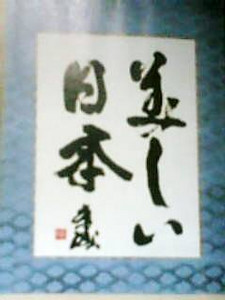 美しい
日本